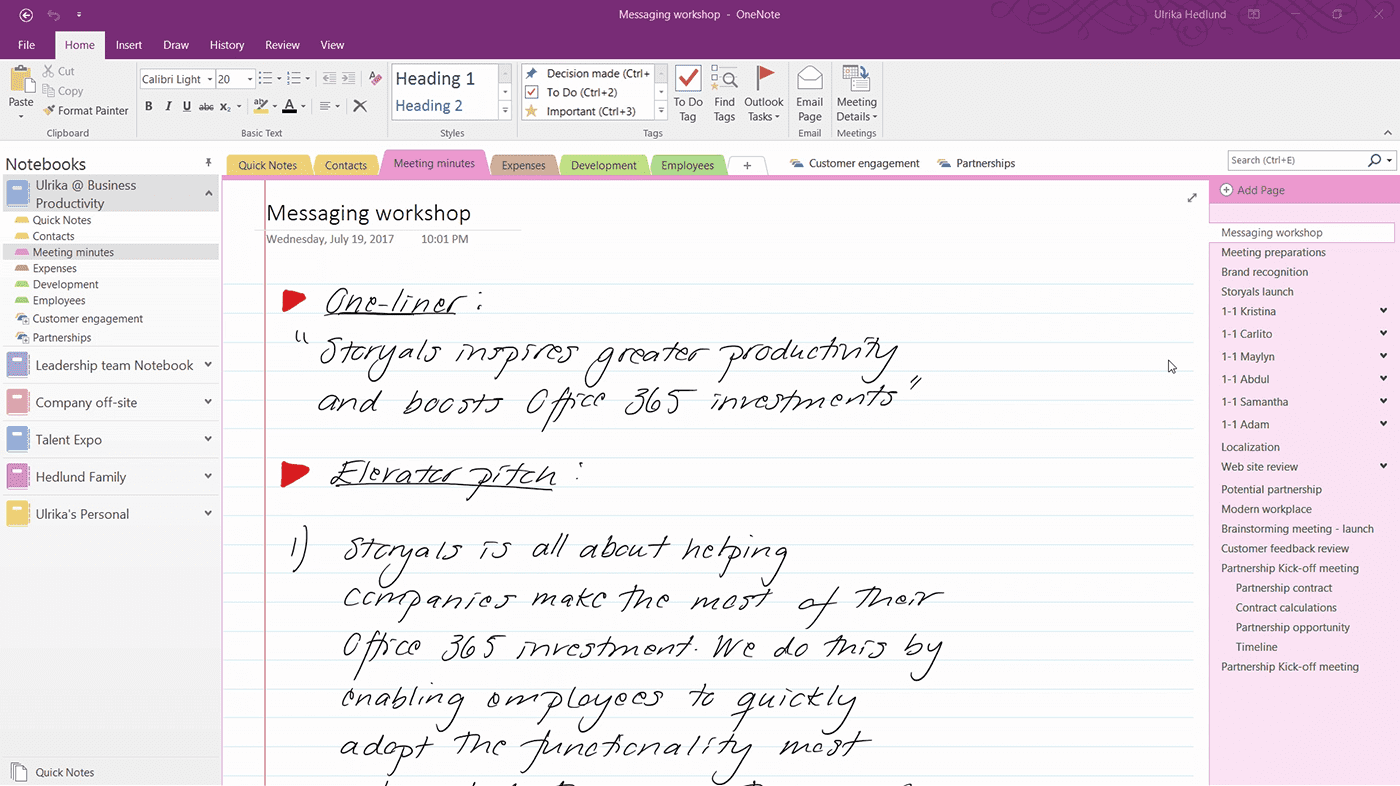 Messaging workshop - OneNote
Ulrika Hedlund
File Home Insert Draw History Review View
Paste
Cut
Copy
Format Painter
Clipboard
Calibri Light 20
B I U abc X₂ A
Basic Text
Heading 1
Heading 2
Styles
Decision made (Ctrl+
To Do (Ctrl+2)
Important (Ctrl+3)
To Do Tag
Find Tags
Outlook Tasks
Tags
Email Page
Email
Meeting Details
Meetings
Notebooks
Quick Notes Contacts Meeting minutes Expenses Development Employees + Customer engagement Partnerships
Search (Ctrl+E)
Ulrika @ Business
Productivity
Quick Notes
Contacts
Meeting minutes
Expenses
Development
Employees
Customer engagement
Partnerships
Leadership team Notebook
Company off-site
Talent Expo
Hedlund Family
Ulrika's Personal
Quick Notes
Messaging workshop
Wednesday, July 19, 2017 10:01 PM
One-liner :
"Storyals inspires greater productivity
and boosts Office 365 investments"
Elevator pitch :
1) Storyals is all about helping
companies make the most of their
Office 365 investment. We do this by
enabling employees to quickly
adopt the functionality most
Add Page
Messaging workshop
Meeting preparations
Brand recognition
Storyals launch
1-1 Kristina
1-1 Carlito
1-1 Maylyn
1-1 Abdul
1-1 Samantha
1-1 Adam
Localization
Web site review
Potential partnership
Modern workplace
Brainstorming meeting - launch
Customer feedback review
Partnership Kick-off meeting
Partnership contract
Contract calculations
Partnership opportunity
Timeline
Partnership Kick-off meeting